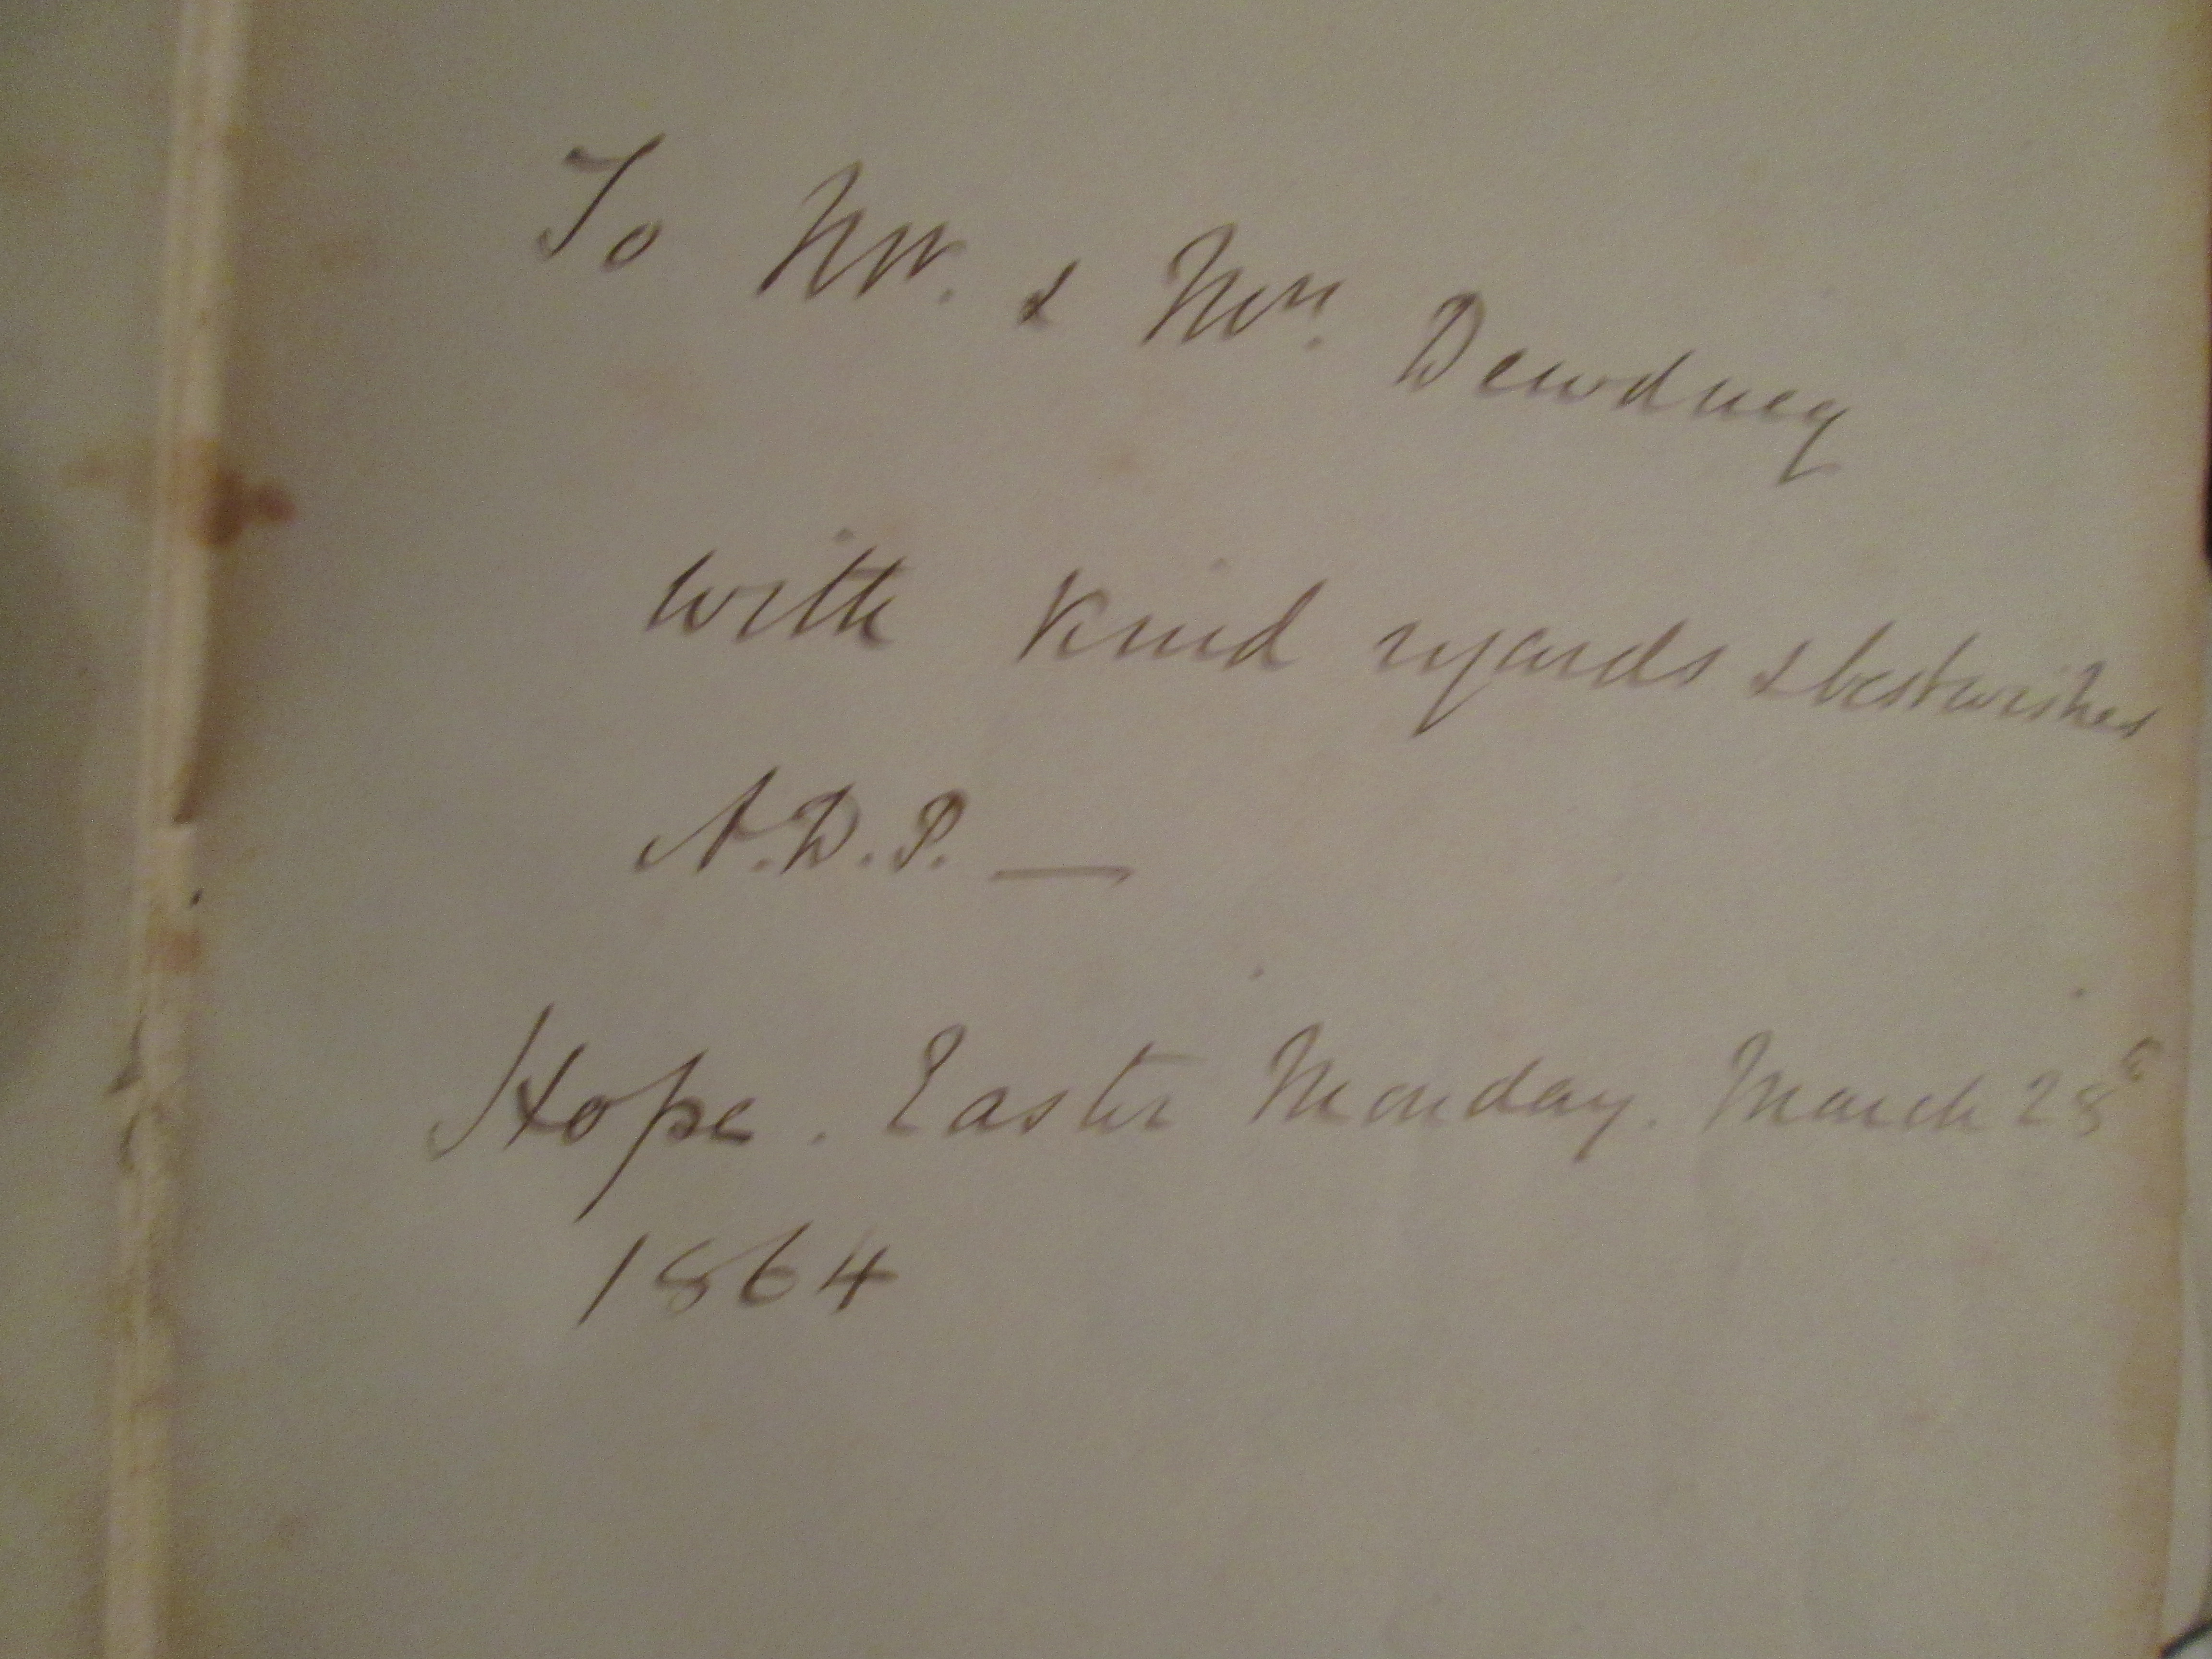 To Mr. & Mrs. Dewdney
with kind regards & best wishes
A.D.P. —
Hope. Easter Monday. March 28th
1864